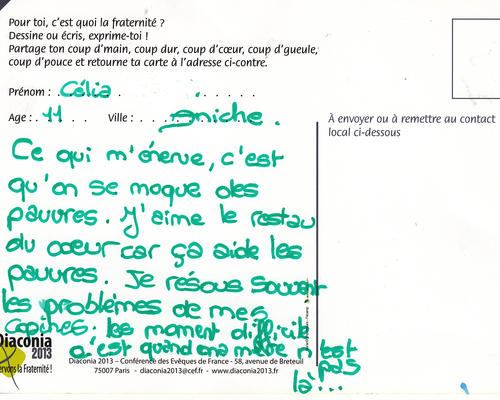 Pour toi, c'est quoi la fraternité ?
Dessine ou écris, exprime-toi !
Partage ton coup d'main, coup dur, coup d'cœur, coup d'gueule,
coup d'pouce et retourne ta carte à l'adresse ci-contre.
Prénom : Célia
Age : 11 Ville : Aniche.
À envoyer ou à remettre au contact
local ci-dessous
Ce qui m'énerve, c'est
qu'on se moque des
pauvres. J'aime le restau
du coeur car ça aide les
pauvres. Je résous souvent
les problèmes de mes
copines. les moment difficile
c'est quand ma mère n'est
pas
là...
Diaconia
2013
servons la Fraternité !
Diaconia 2013 – Conférence des Evêques de France - 58, avenue de Breteuil
75007 Paris - diaconia2013@cef.fr - www.diaconia2013.fr